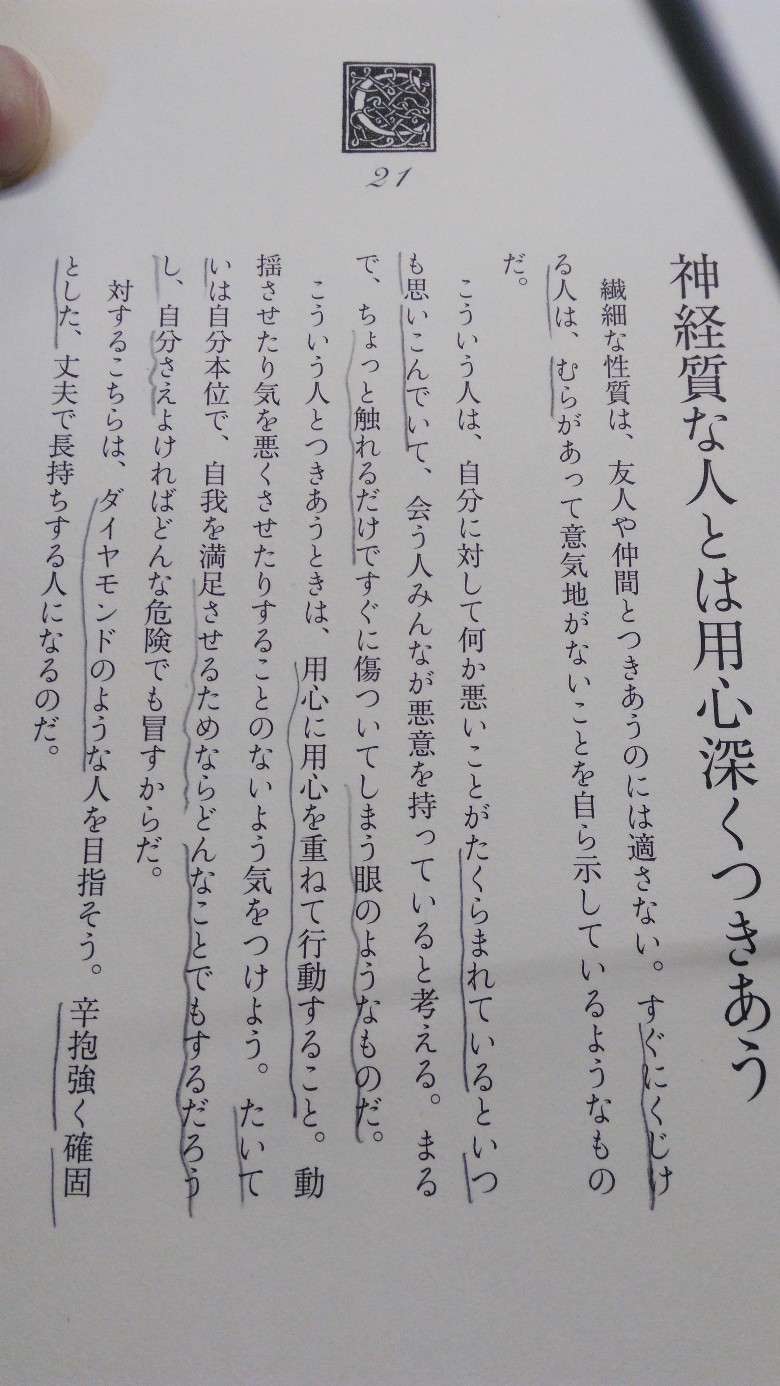 21
神経質な人とは用心深くつきあう
繊細な性質は、友人や仲間とつきあうのには適さない。すぐにくじけ
る人は、むらがあって意気地がないことを自ら示しているようなもの
だ。
こういう人は、自分に対して何か悪いことがたくらまれているといつ
も思いこんでいて、会う人みんなが悪意を持っていると考える。まる
で、ちょっと触れるだけですぐに傷ついてしまう眼のようなものだ。
こういう人とつきあうときは、用心に用心を重ねて行動すること。動
揺させたり気を悪くさせたりすることのないよう気をつけよう。たいて
いは自分本位で、自我を満足させるためならどんなことでもするだろう
し、自分さえよければどんな危険でも冒すからだ。
対するこちらは、ダイヤモンドのような人を目指そう。辛抱強く確固
とした、丈夫で長持ちする人になるのだ。